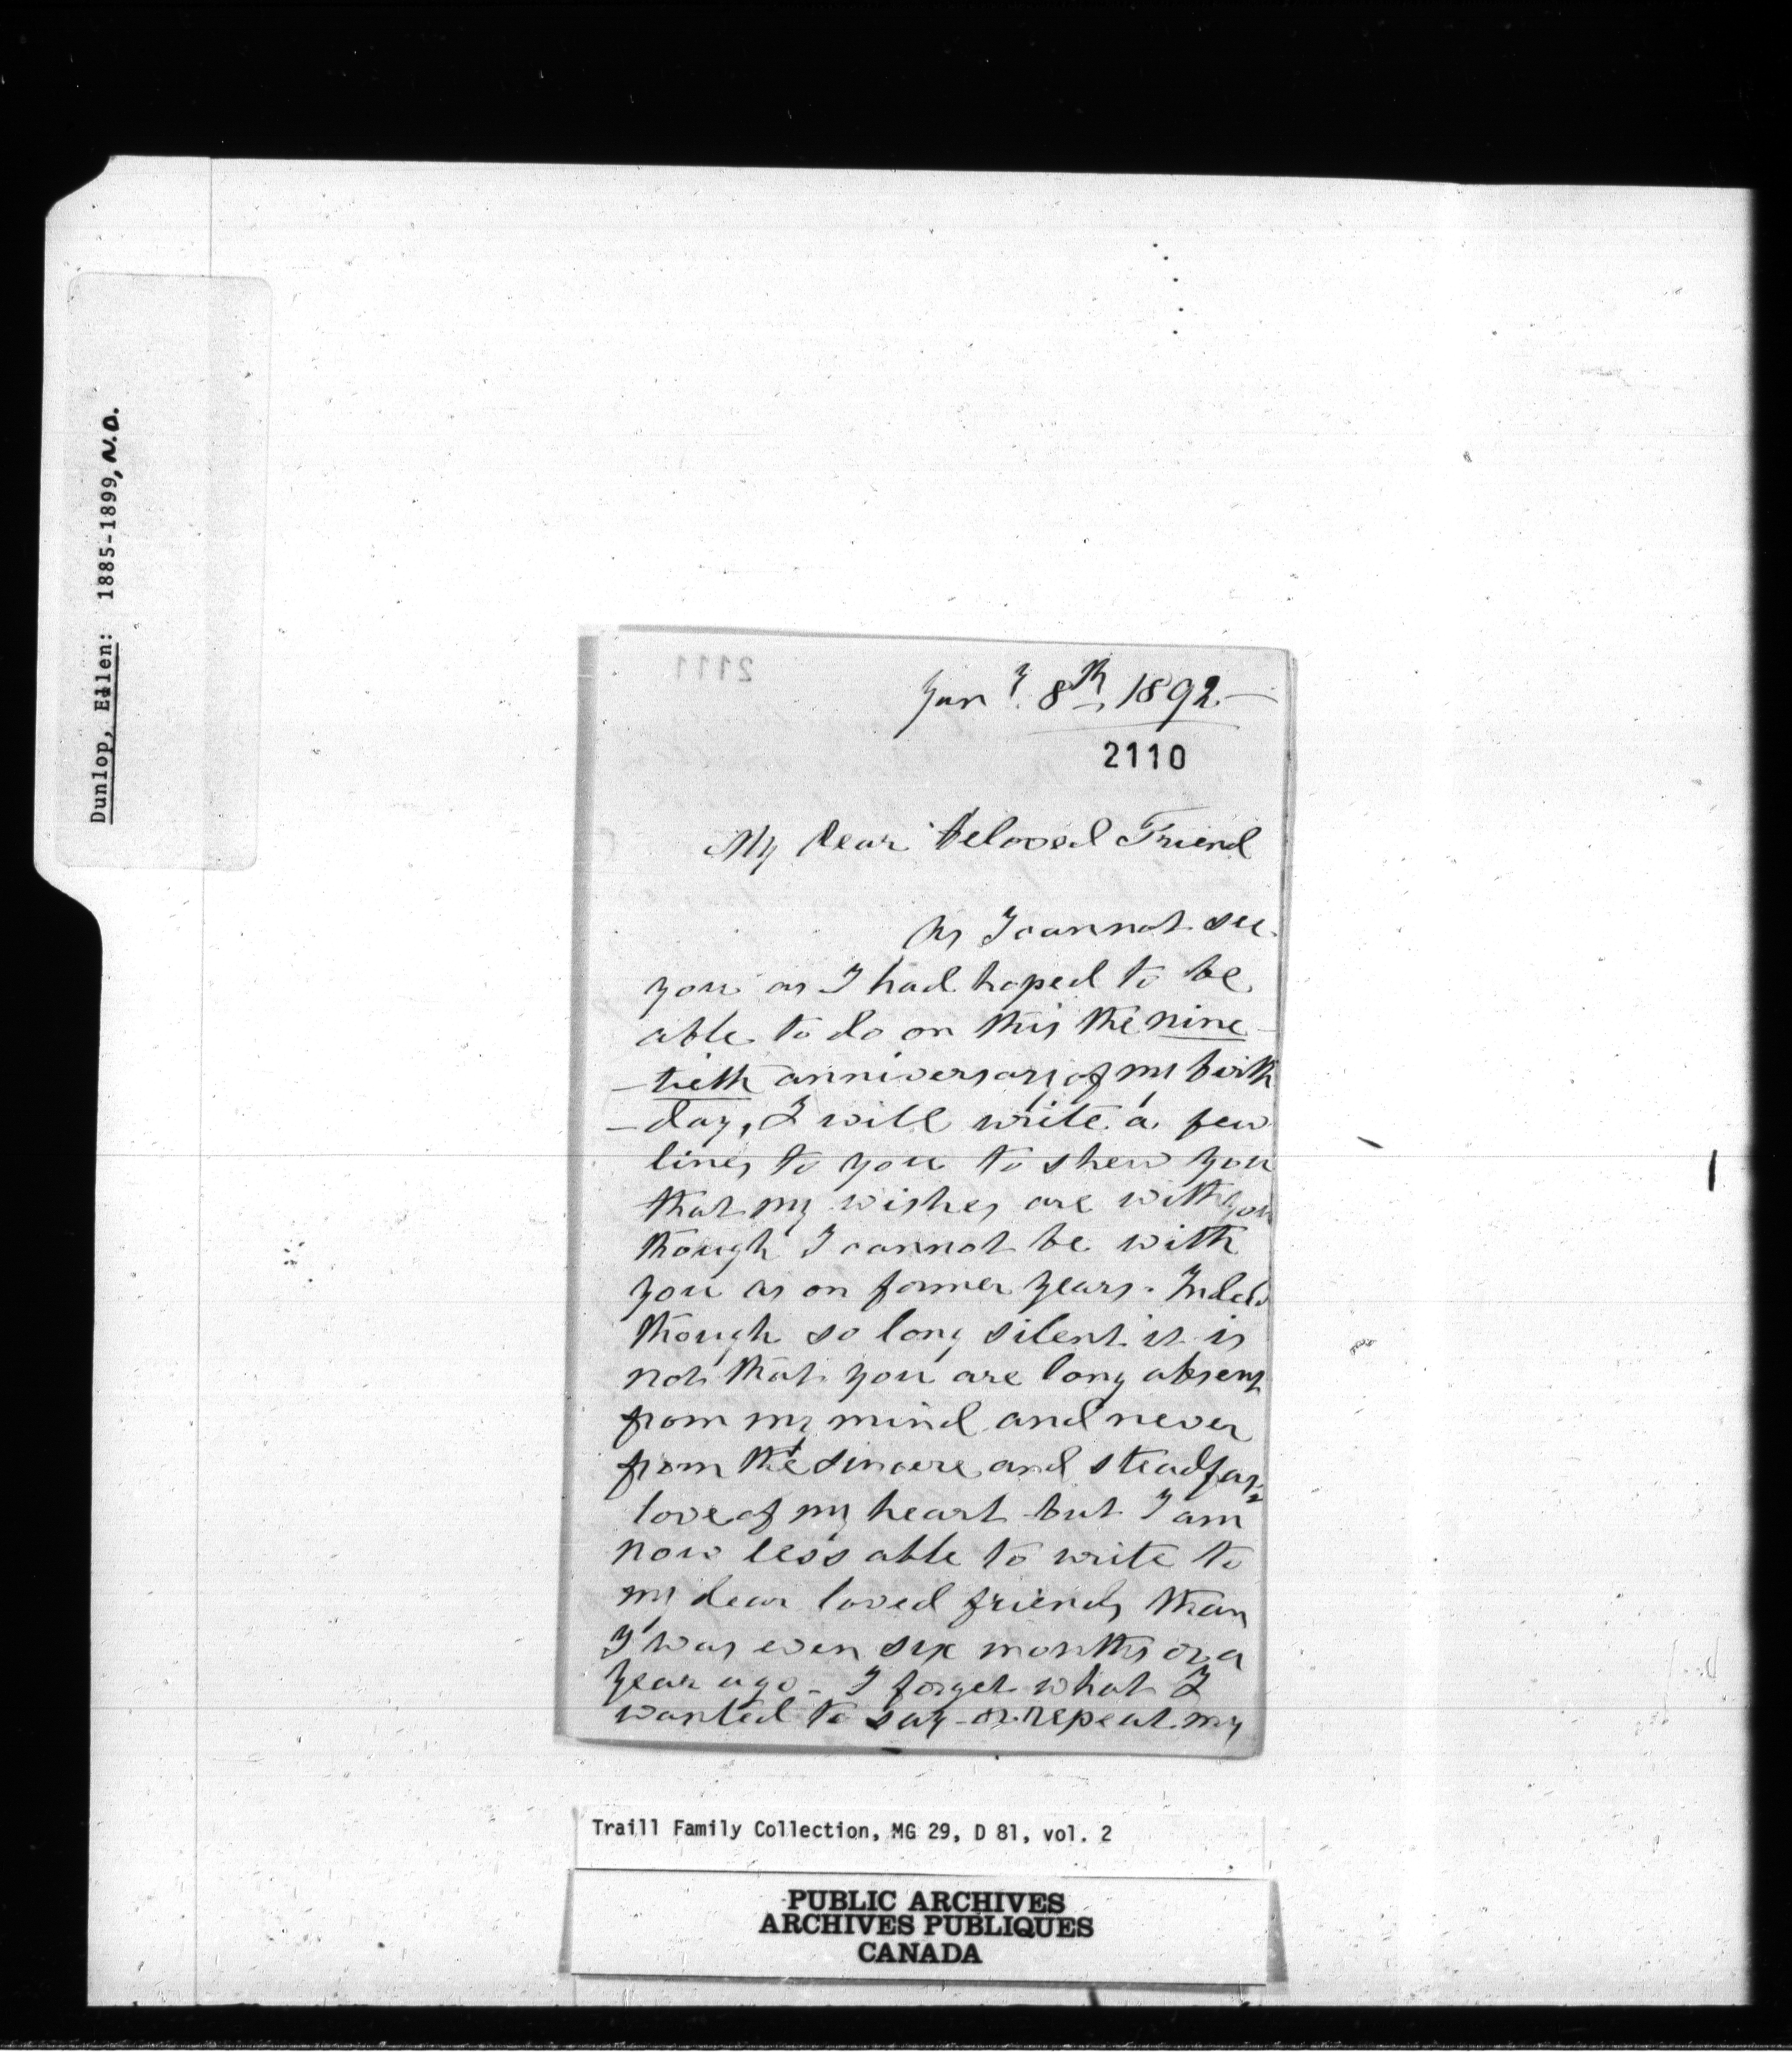 Dunlop, Ellen: 1885-1899, N.D.
2111
Jany. 8th, 1892.—
2110
My Dear beloved Friend
As I cannot see
you as I had hoped to be
able to do on this the nine-
-tieth anniversary of my birth
-day, I will write a few
lines to you to shew you
that my wishes are with you
though I cannot be with
you as on former years. Indeed
though so long silent it is
not that you are long absent
from my mind and never
from the sincere and steadfast
love of my heart but I am
now less able to write to
my dear loved friends than
I was even six months or a
year ago - I forget what I
wanted to say - or repeat my
Traill Family Collection, MG 29, D 81, vol. 2
PUBLIC ARCHIVES
ARCHIVES PUBLIQUES
CANADA